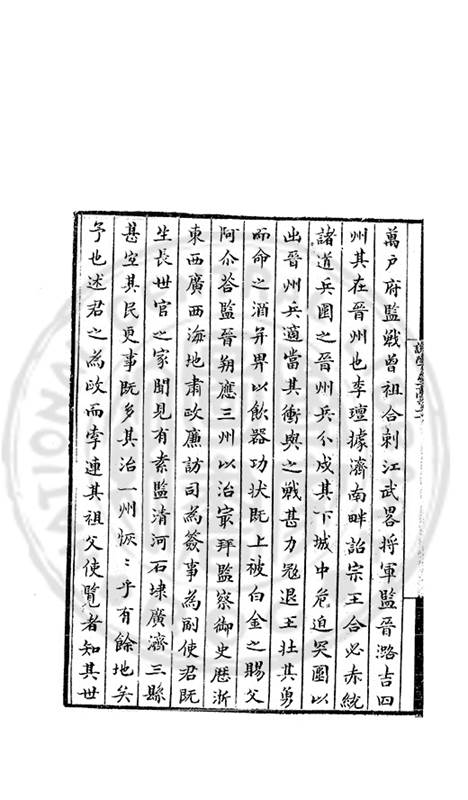 萬戶府監戰曾祖合剌江武畧將軍監晉潞吉四
州其在晉州也李璮據濟南畔詔宗王合必赤統
諸道兵圍之晉州兵分戍其下城中危迫突圍以
出晉州兵適當其衝與之戰甚力冦退王壮其勇
而命之酒并畀以飲器功状既上被白金之賜父
阿尒荅監晉朔應三州以治㝡拜監察御史歴浙
東西廣西海地肅政廉訪司為簽事為副使君既
生長世官之家聞見有素監清河石埭廣濟三縣
甚空其民更事既多其治一州恢:乎有餘地矣
予也述君之為政而牽連其祖父使覽者知其世